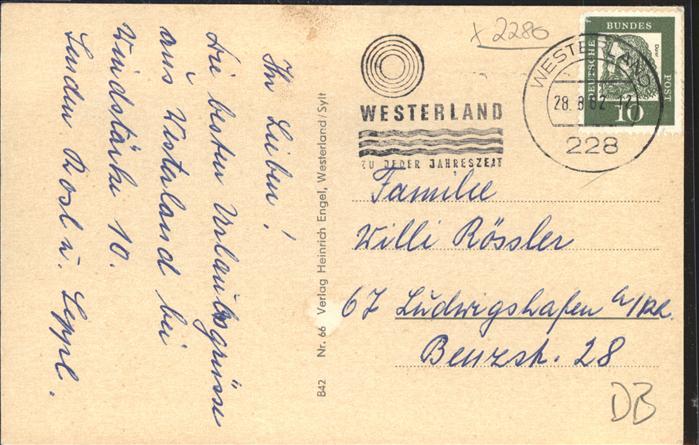 Ihr Lieben!
Die besten Urlaubsgrüsse
aus Westerland bei
Windstärke 10.
senden Rosl u. Seppl.
B42 Nr. 66 Verlag Heinrich Engel, Westerland/Sylt
x 2280
WESTERLAND
ZU JEDER JAHRESZEIT
WESTERLAND
28.8.62
228
DEUTSCHE
BUNDES
POST
Dürer
10
Familie
Willi Rössler
67 Ludwigshafen a/Rh.
Benzstr. 28
DB